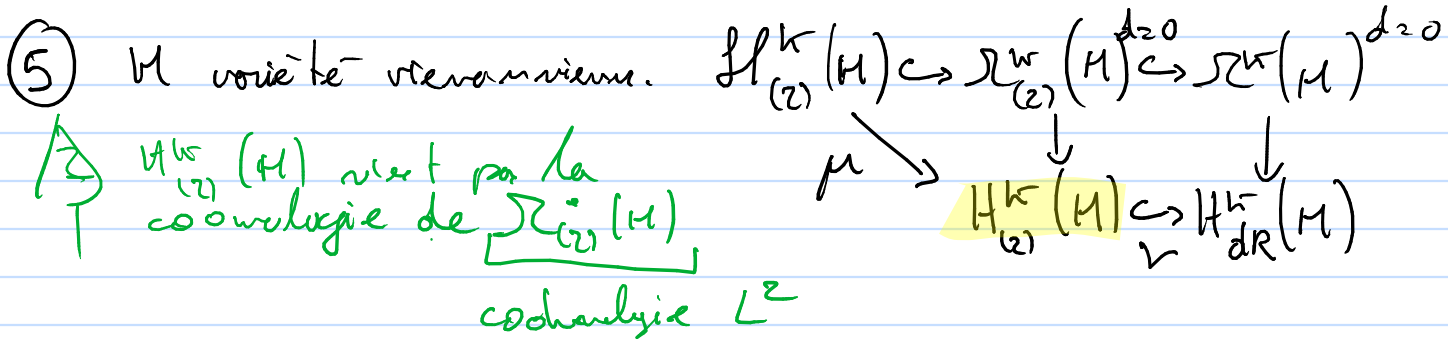 ⑤ M variété riemannienne. ℋ^k_(2)(M) ↪ Ω^k_(2)(M)^{d=0} ↪ Ω^k(M)^{d=0}
μ ↘ ↓ ↓
H^k_(2)(M) ↪ H^k_dR(M)
ν
H^k_(2)(M) n'est pas la
cohomologie de Ω^•_(2)(M)
cohomologie L²